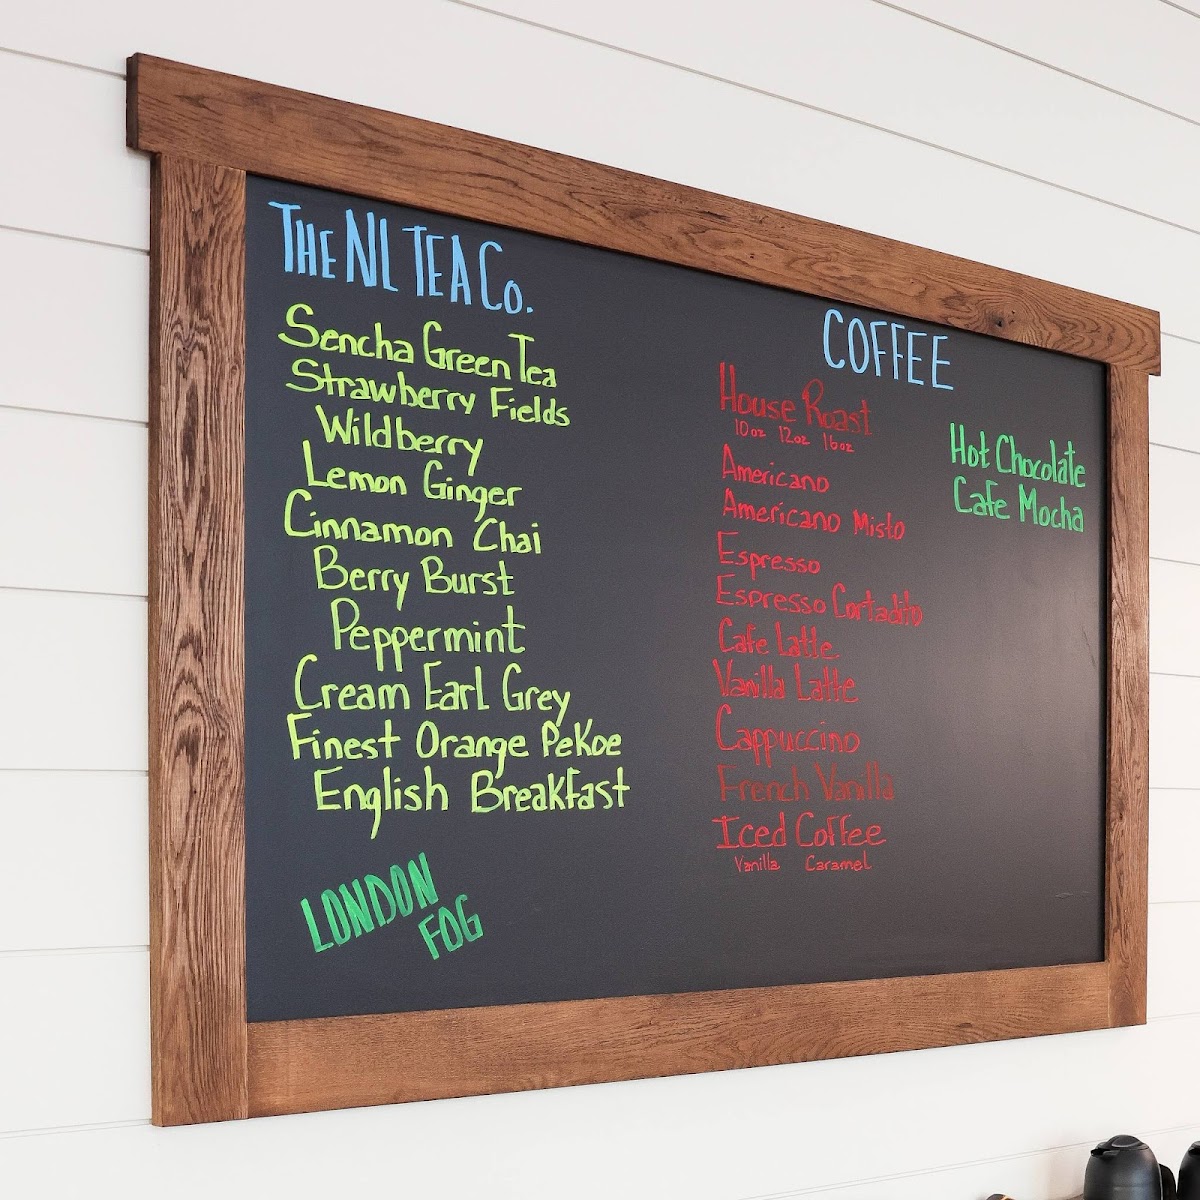 THE NL TEA CO.
Sencha Green Tea
Strawberry Fields
Wildberry
Lemon Ginger
Cinnamon Chai
Berry Burst
Peppermint
Cream Earl Grey
Finest Orange Pekoe
English Breakfast
LONDON
FOG
COFFEE
House Roast
10oz 12oz 16oz
Americano
Americano Misto
Espresso
Espresso Cortadito
Cafe Latte
Vanilla Latte
Cappuccino
French Vanilla
Iced Coffee
Vanilla Caramel
Hot Chocolate
Cafe Mocha